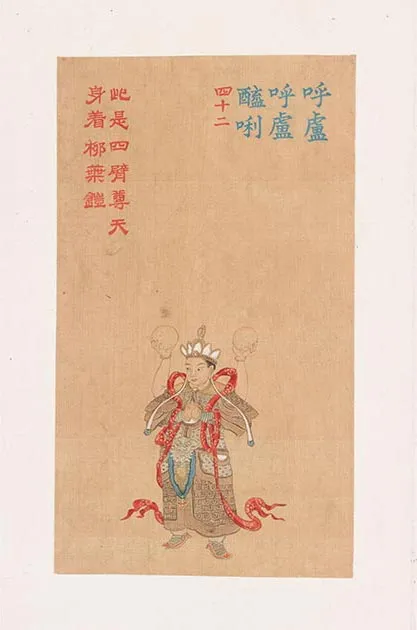 呼盧
呼盧
醯唎
四十二
此是四臂尊天
身着柳葉鎧